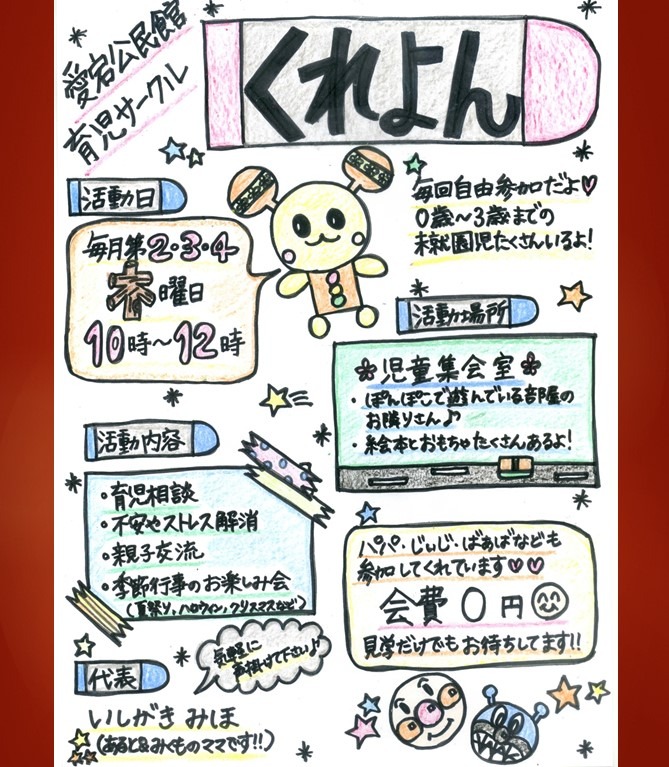 愛宕公民館
育児サークル
くれよん
毎回自由参加だよ♡
0歳〜3歳までの
未就園児たくさんいるよ!
活動日
毎月第2・3・4
木曜日
10時〜12時
活動場所
児童集会室
・ぽんぽこで遊んでいる部屋の
お隣りさん♪
・絵本とおもちゃたくさんあるよ!
活動内容
・育児相談
・不安やストレス解消
・親子交流
・季節行事のお楽しみ会
(夏祭り、ハロウィン、クリスマスなど)
パパ・じぃじ・ばぁばなども
参加してくれています♡♡
会費0円
見学だけでもお待ちしてます!!
気軽に
声掛けて下さい♪
代表
いしがき みほ
(あると&みくものママです!!)